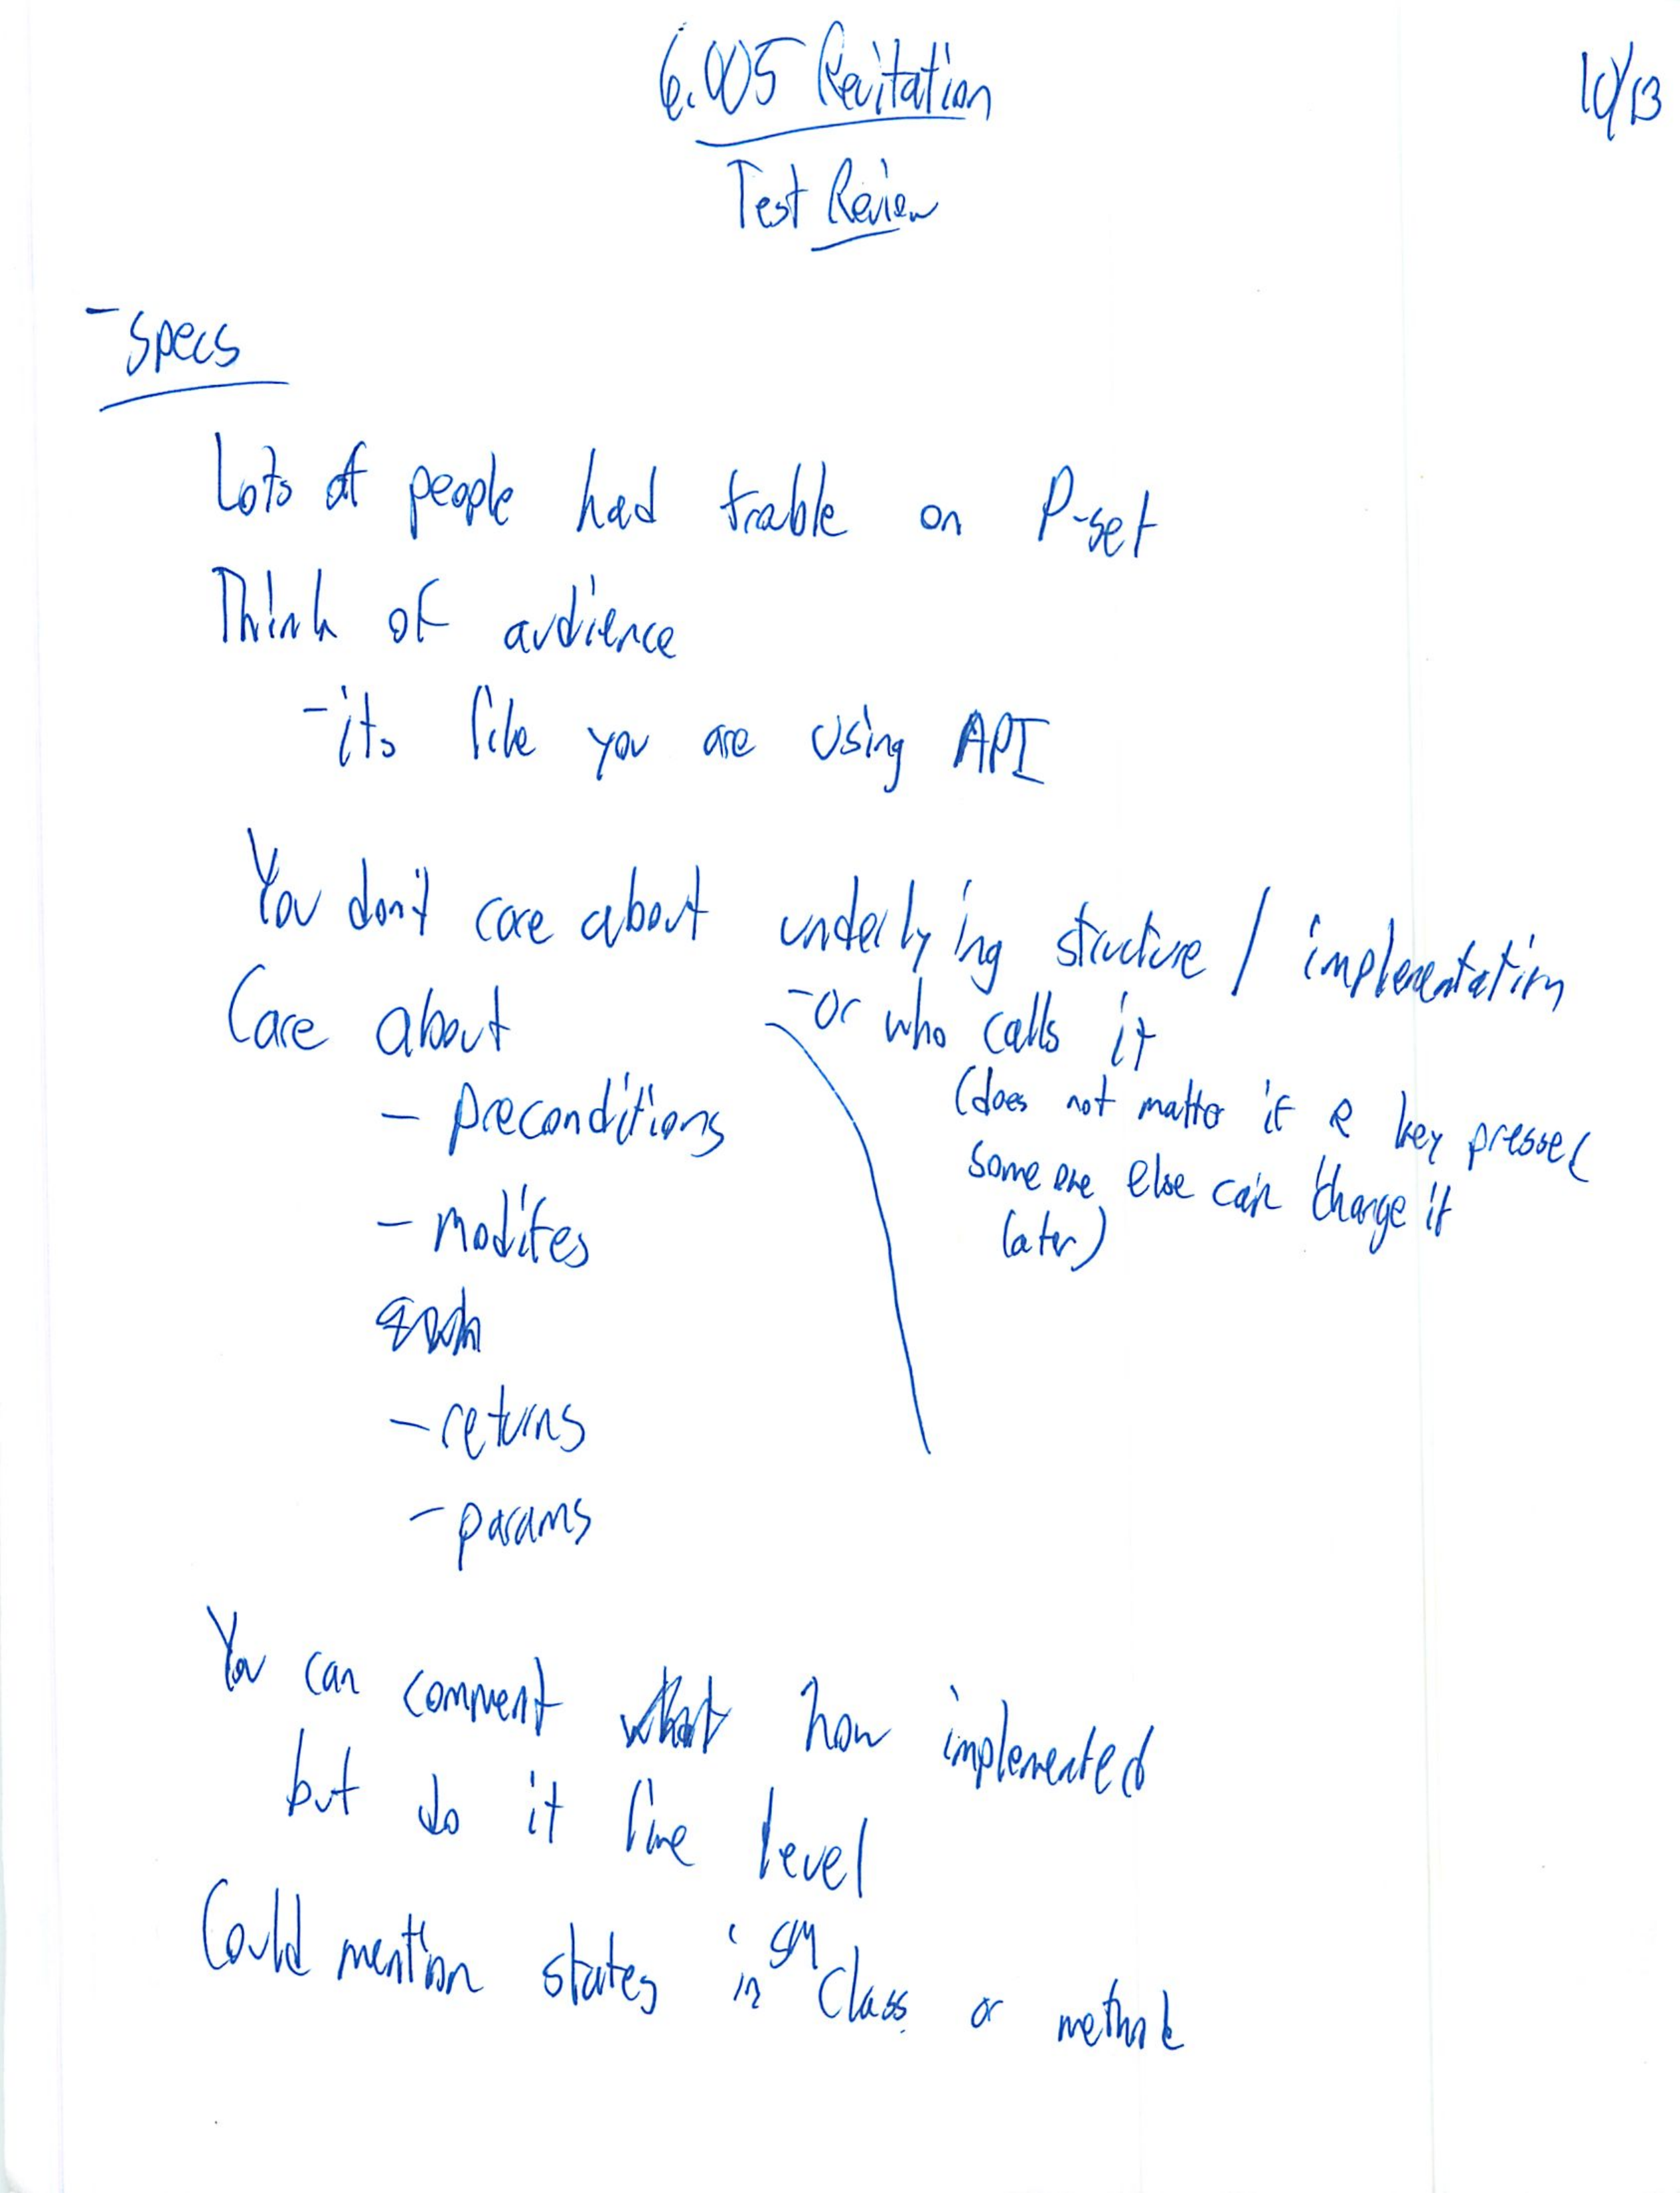 6.005 Recitation
10/13
Test Review
- Specs
Lots of people had trouble on P-set
Think of audience
- its like you are using API
You don't care about underlying structure / implementation
- or who calls it
(does not matter if a key presser
some one else can change it
later)
Care about
- preconditions
- modifies
- returns
- params
You can comment how implemented
but do it line level
Could mention states in SM class or method